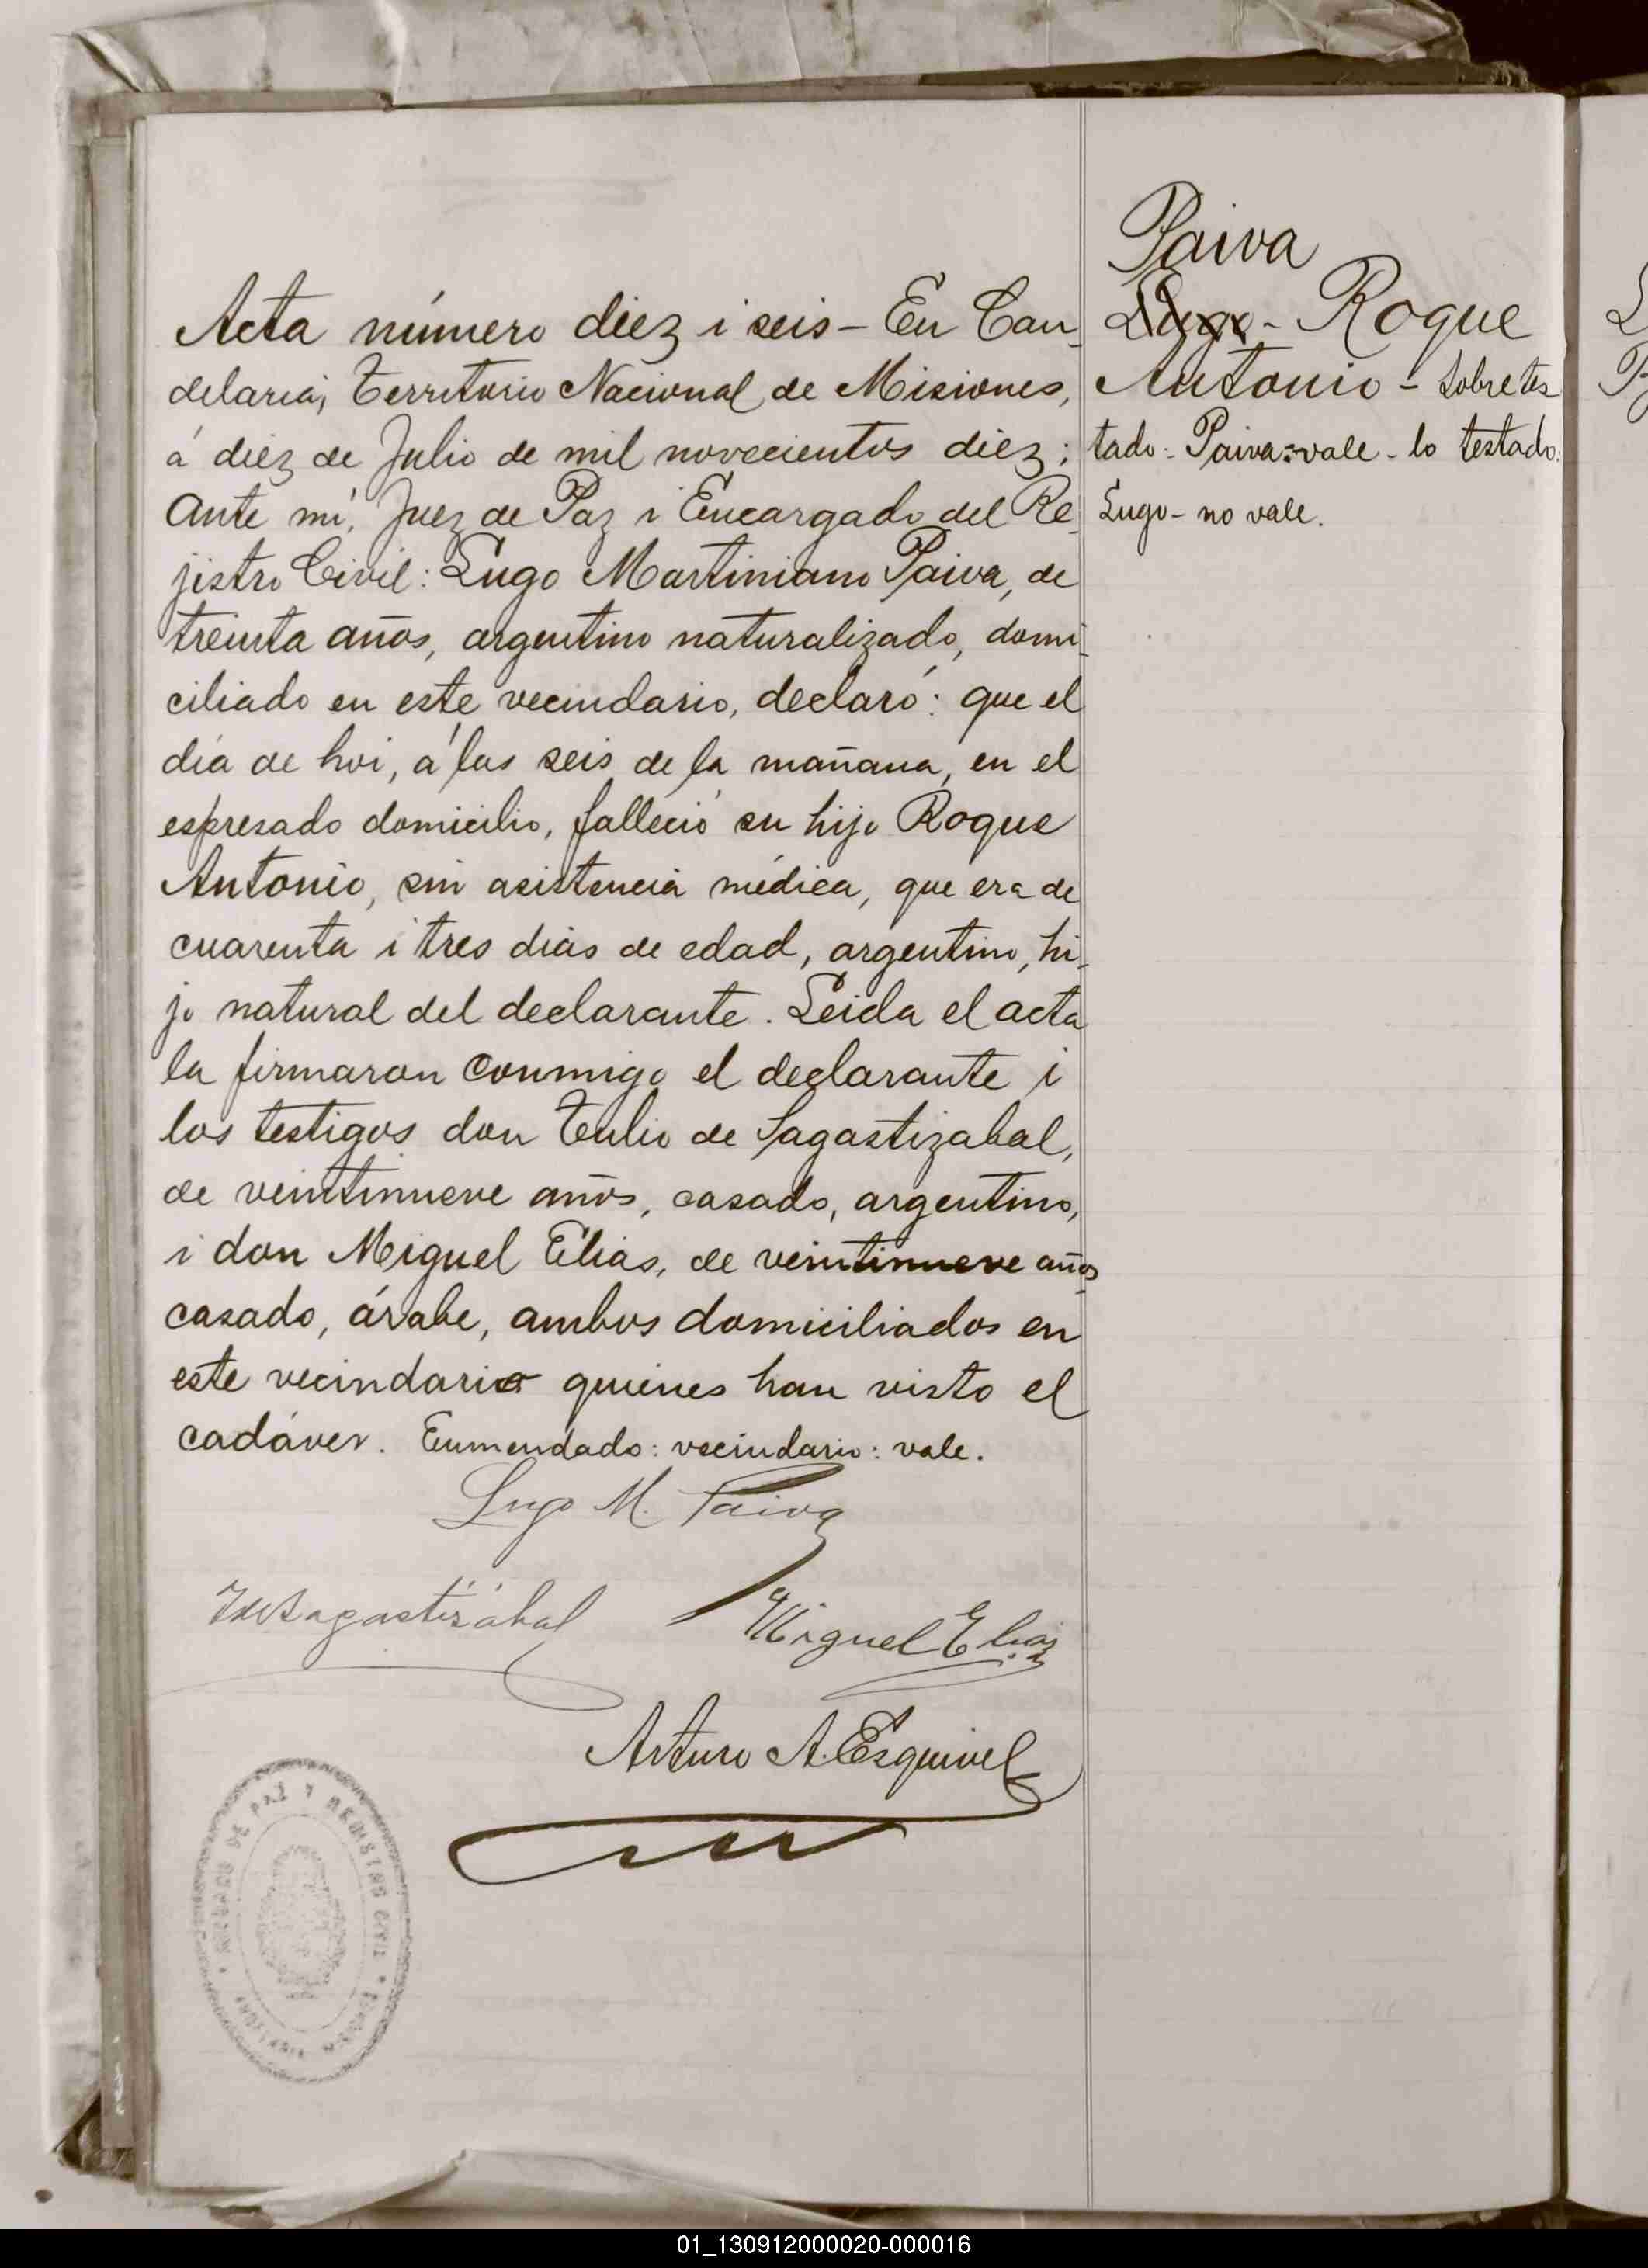 Paiva
Lugo - Roque
Antonio - Sobretes
tado: Paiva: vale - lo testado:
Lugo - no vale.
Acta número diez i seis - En Can_
delaria, Territorio Nacional de Misiones,
á diez de Julio de mil novecientos diez;
Ante mí, Juez de Paz i Encargado del Re_
jistro Civil: Lugo Martiniano Paiva, de
treinta años, argentino naturalizado, domi_
ciliado en este vecindario, declaró: que el
día de hoi, á las seis de la mañana, en el
espresado domicilio, falleció su hijo Roque
Antonio, sin asistencia médica, que era de
cuarenta i tres dias de edad, argentino, hi_
jo natural del declarante. Leida el acta
la firmaron conmigo el declarante i
los testigos don Tulio de Sagastizabal,
de veintinueve años, casado, argentino,
i don Miguel Elias, de veintinueve años
casado, árabe, ambos domiciliados en
este vecindario quienes han visto el
cadáver. Enmendado: vecindario: vale.
Lugo M. Paiva
TdeSagastizábal
Miguel Elias
Arturo A. Esquivel
JUZGADO DE PAZ Y REGISTRO CIVIL
01_130912000020-000016